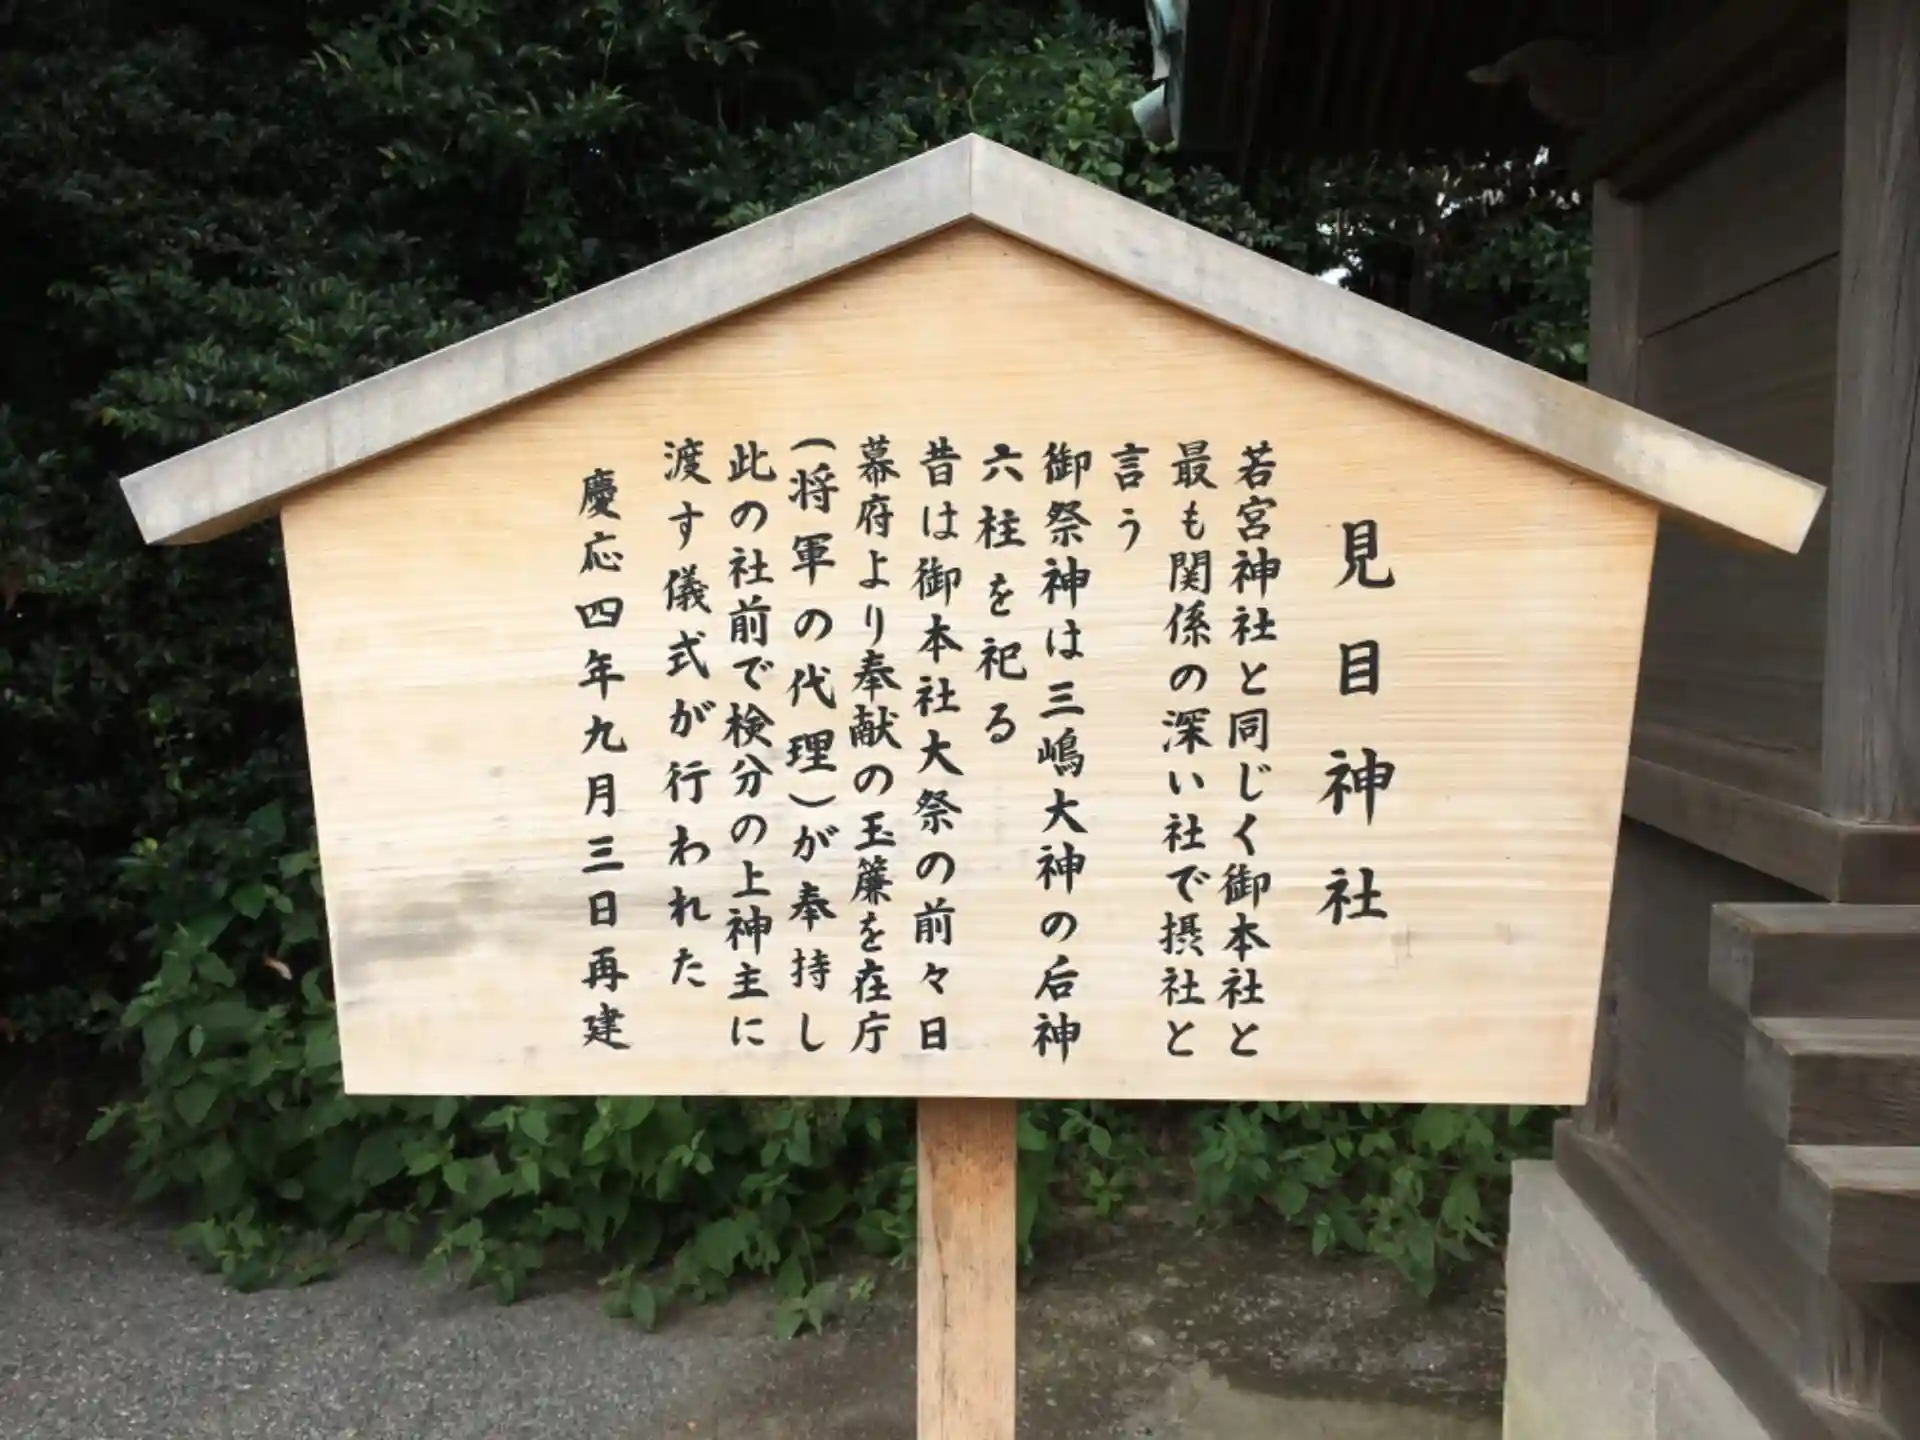 見目神社
若宮神社と同じく御本社と
最も関係の深い社で摂社と
言う
御祭神は三嶋大神の后神
六柱を祀る
昔は御本社大祭の前々日
幕府より奉献の玉簾を在庁
(将軍の代理)が奉持し
此の社前で検分の上神主に
渡す儀式が行われた
慶応四年九月三日再建